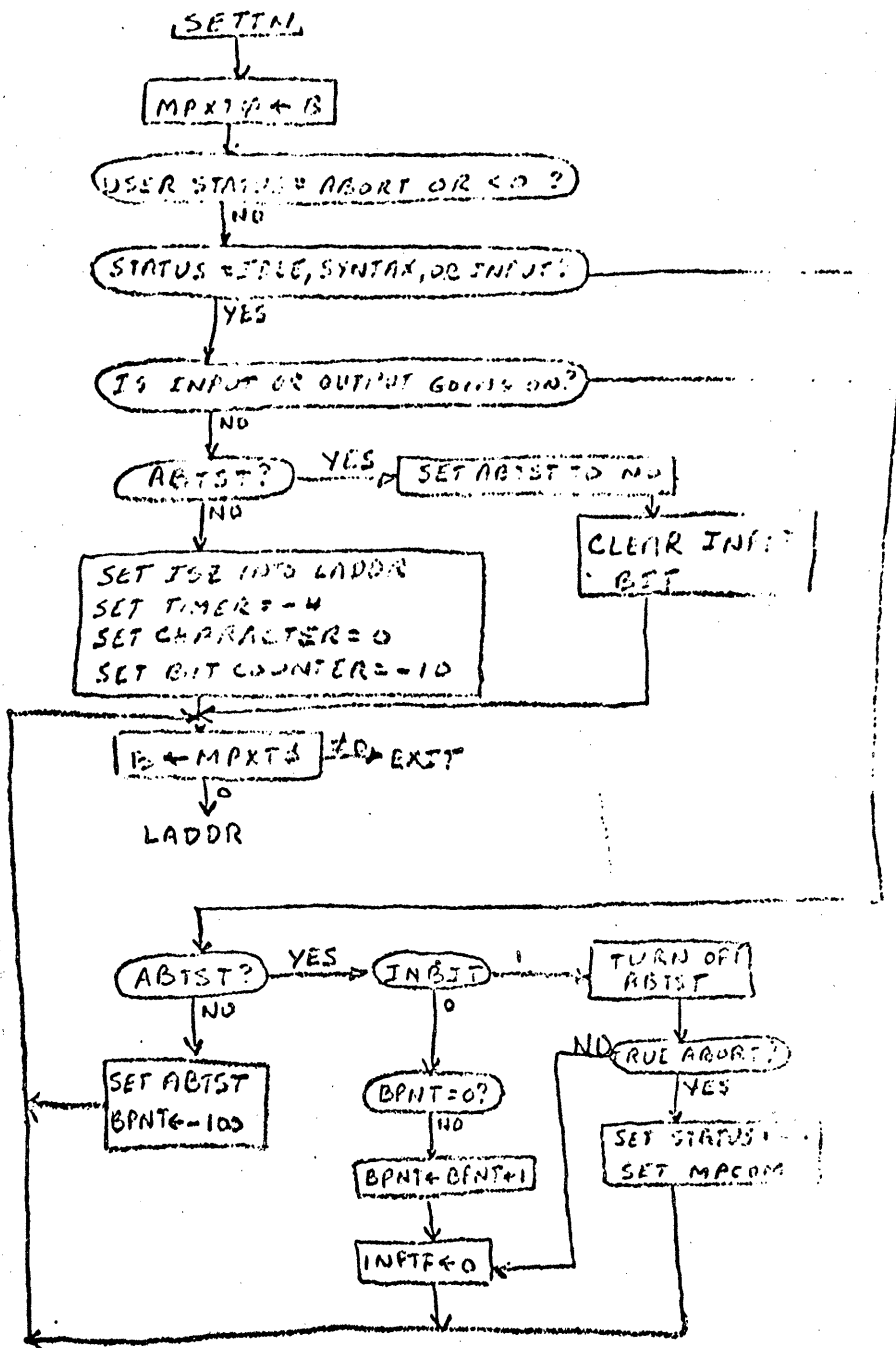 SETTN
MPXTØ ← B
USER STATUS = ABORT OR < 0 ?
NO
STATUS = IDLE, SYNTAX, OR INPUT?
YES
IS INPUT OR OUTPUT GOING ON?
NO
ABTST?
YES
SET ABTST TO NO
NO
CLEAR
BIT
SET ISZ INTO LADDR
SET TIMER = -4
SET CHARACTER = 0
SET BIT COUNTER = -10
B ← MPXTØ
≠0
EXIT
0
LADDR
ABTST?
YES
INBIT
1
TURN OFF
ABTST
NO
0
NO
TRUE ABORT?
YES
SET ABTST
BPNT ← -100
BPNT = 0?
NO
SET STATUS
SET MPCOM
BPNT ← BPNT + 1
INPTF ← 0